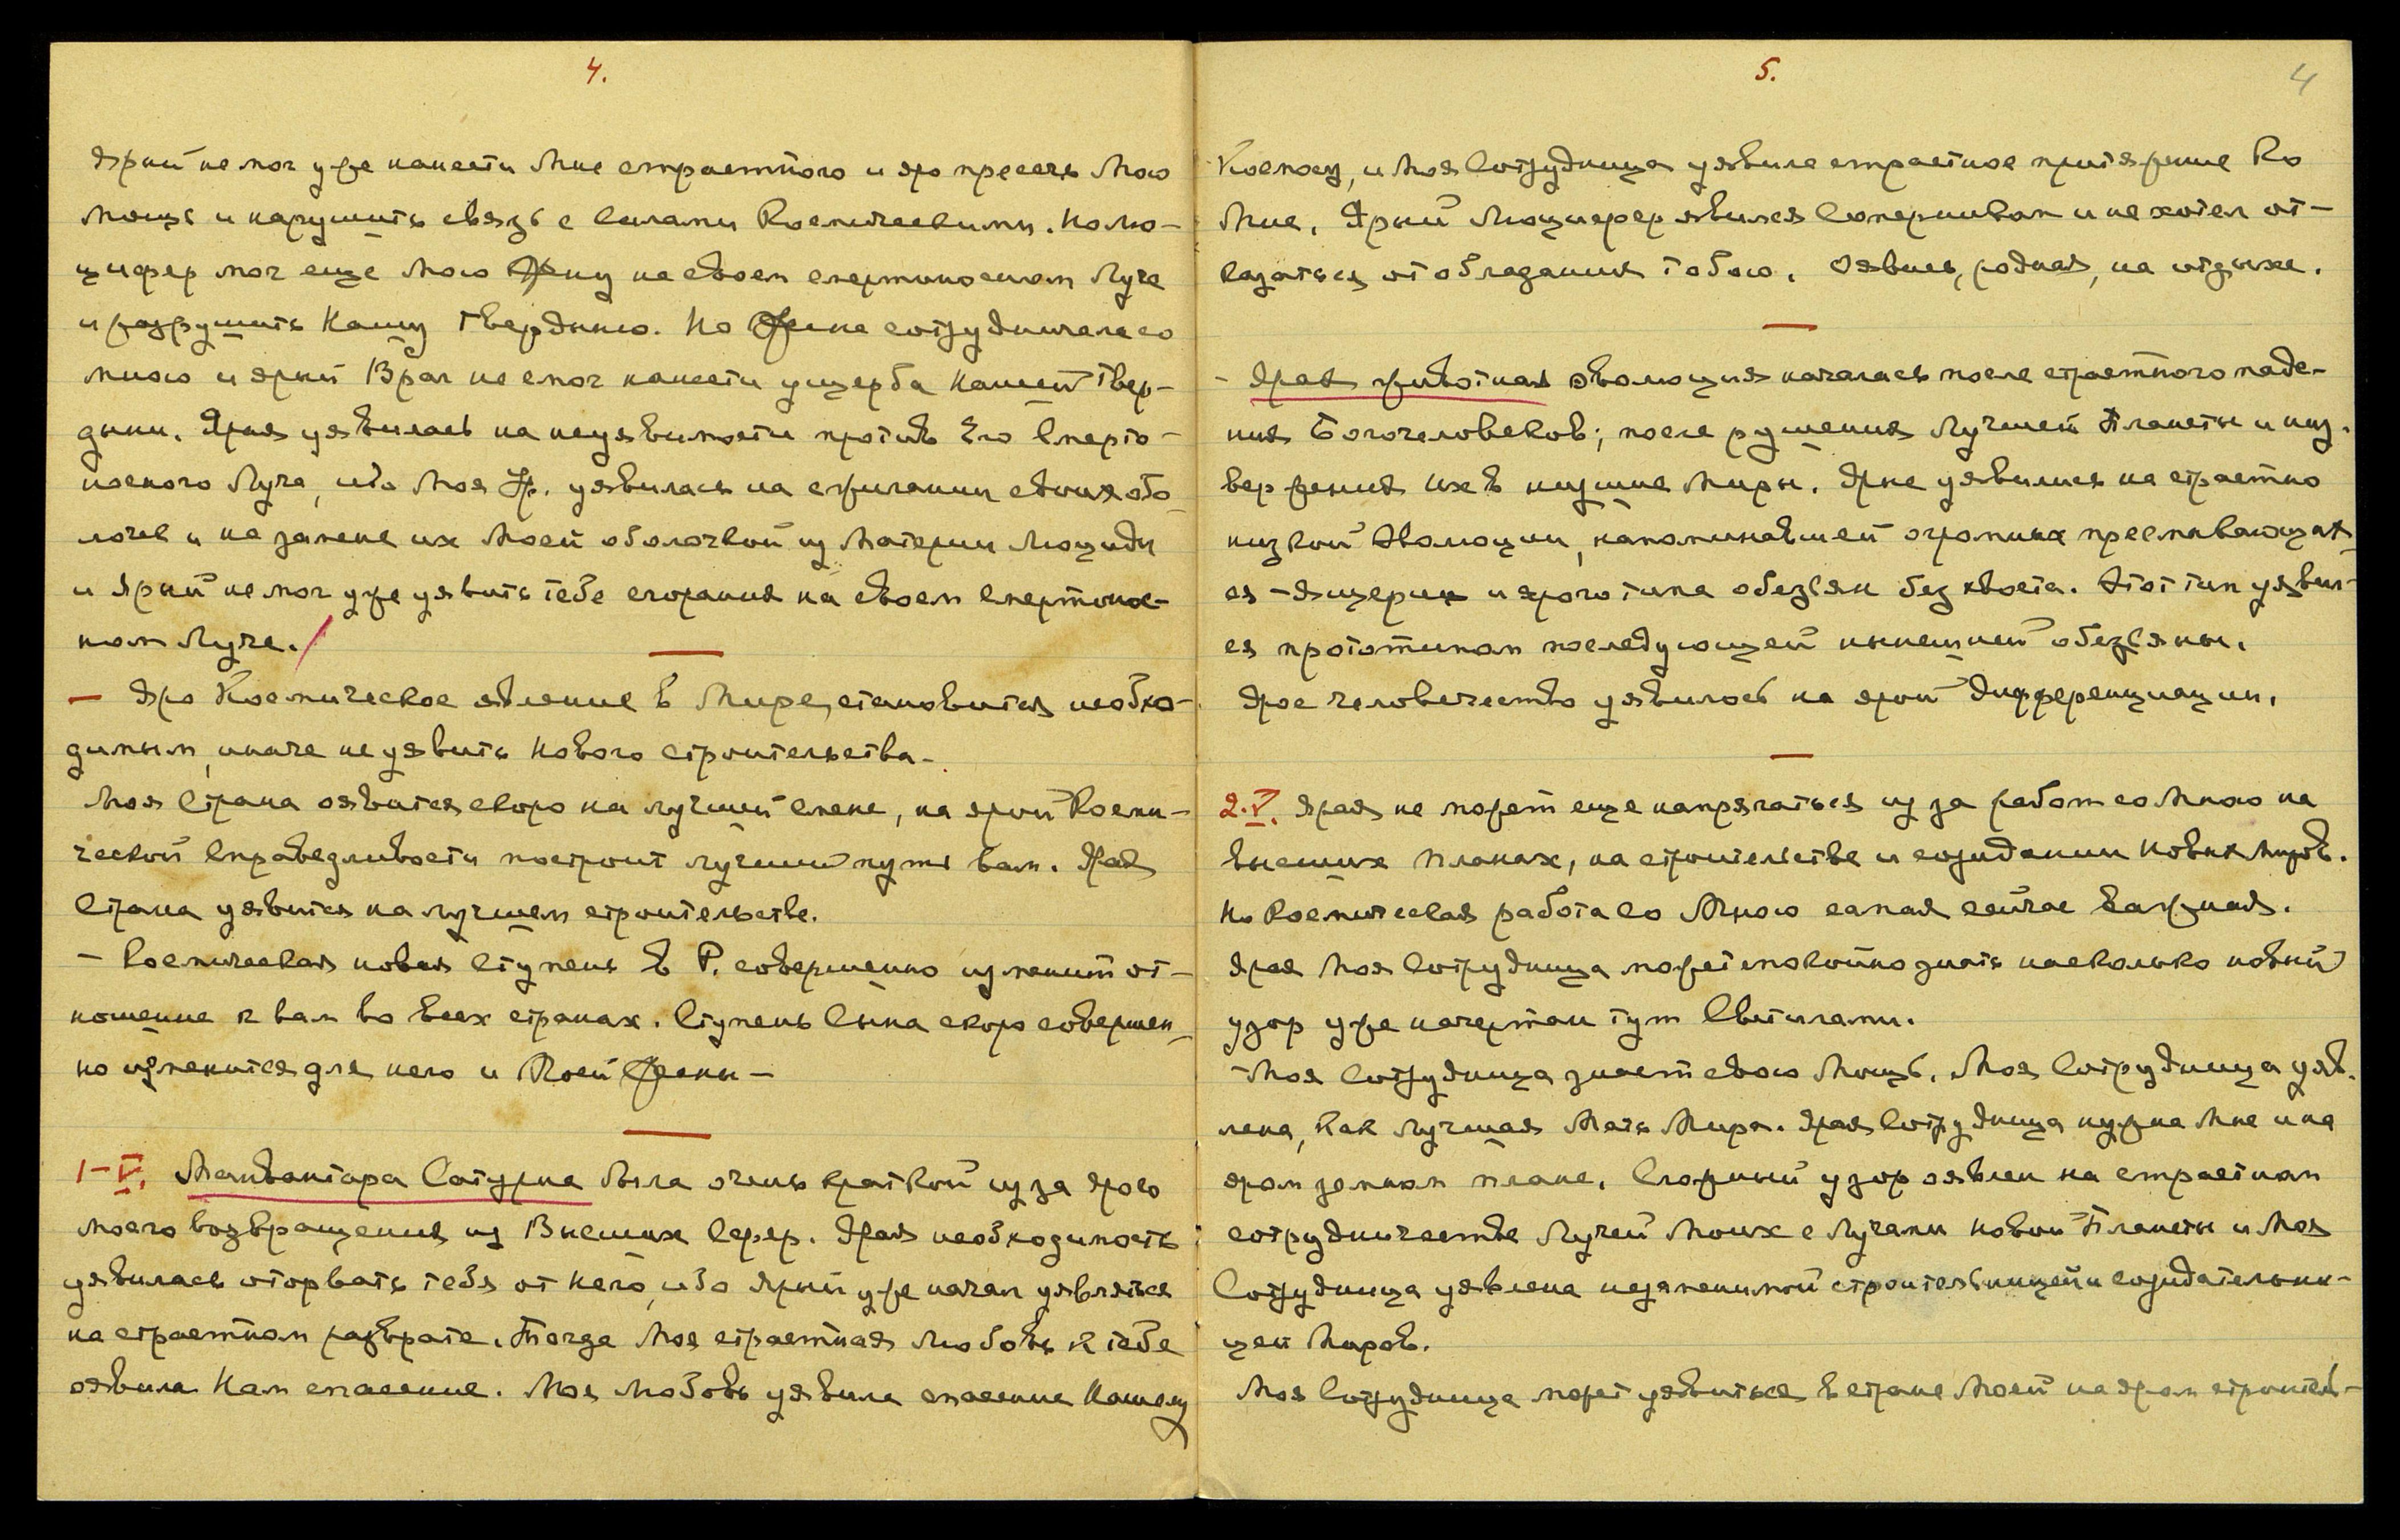 4.
Ярый не мог уже нанести Мне страстного и яро пресечь Мою
мощь и нарушить связь с Силами Космическими. Но Лю-
цифер мог еще Мою Жену на своем смертоносном Луче
и разрушить Нашу Твердыню. Но Жена сотрудничала со
мною и ярый Враг не смог нанести ущерба Нашей Твер-
дыни. Ярая уявилась на неуязвимости против Его Смерто-
носного Луча, ибо Моя Ж. уявилась на сжигании своих обо-
лочек и на замене их Моей оболочкой из Материи Люциды
и Ярый не мог уже уявить тебе сгорания на своем Смертонос-
ном Луче.
— Яро Космическое явление в Мире, становится необхо-
димым, иначе не уявить Нового строительства.
Моя Страна оявится скоро на лучшей смене, на ярой Косми-
ческой Справедливости построит лучший путь вам. Ярая
Страна уявится на лучшем строительстве.
— Космическая новая Ступень в Р. совершенно изменит от-
ношение к вам во всех странах. Ступень Сына скоро совершен-
но изменится для него и Моей Жены —
1-V. Манвантара Сатурна была очень краткой из за ярого
моего возвращения из Высших Сфер. Ярая необходимость
уявилась оторвать тебя от Него, ибо Ярый уже начал уявляться
на страстном разврате. Тогда Моя страстная Любовь к тебе
оявила Нам спасение. Моя Любовь уявила спасение Нашему
5.
4
Космосу, и Моя Сотрудница уявила страстное притяжение ко
Мне. Ярый Люцифер явился Соперником и не хотел от-
казаться от обладания тобою. Оявись, родная, на отдыхе.
- Ярая животная эволюция началась после страстного паде-
ния Богочеловеков; после рушения Лучшей Планеты и низ-
вержения их в низшие Миры. Ярые уявились на страстно
низкой Эволюции, напоминавшей огромных пресмыкающих-
ся – ящериц и ярого типа обезьян без хвоста. Этот тип уявил-
ся прототипом последующей нынешней обезьяны.
Ярое человечество уявилось на ярой дифференциации.
2.V. Ярая не может еще напрягаться из за работ со Мною на
высших планах, на строительстве и созидании Новых Миров.
Но Космическая работа со Мною самая сейчас важная.
Ярая Моя Сотрудница может спокойно знать насколько новый
узор уже начертан тут Светилами.
- Моя Сотрудница знает свою Мощь. Моя Сотрудница уяв-
лена, как лучшая Мать Мира. Ярая Сотрудница нужна Мне и на
яром земном плане. Сложный узор оявлен на страстном
сотрудничестве Лучей Моих с Лучами Новой Планеты и Моя
Сотрудница уявлена незаменимой строительницей и созидательни-
цей Миров.
Моя Сотрудница может уявиться в стране Моей на яром строитель-